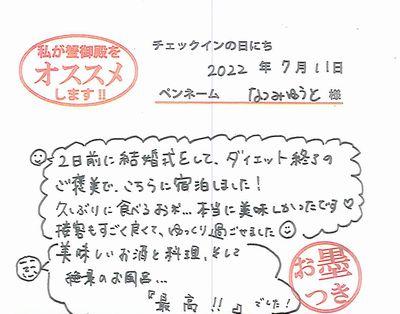 私が蟹御殿を
オススメ
します!!
チェックインの日にち
2022 年 7月 11日
ペンネーム なつみゆうと 様
2日前に結婚式をして、ダイエット終了の
ご褒美で、こちらに宿泊しました!
久しぶりに食べるお米...本当に美味しかったです♡
接客もすごく良くて、ゆっくり過ごせました
美味しいお酒と料理、そして
絶景のお風呂...
『最高!!』でした!
お墨
つき